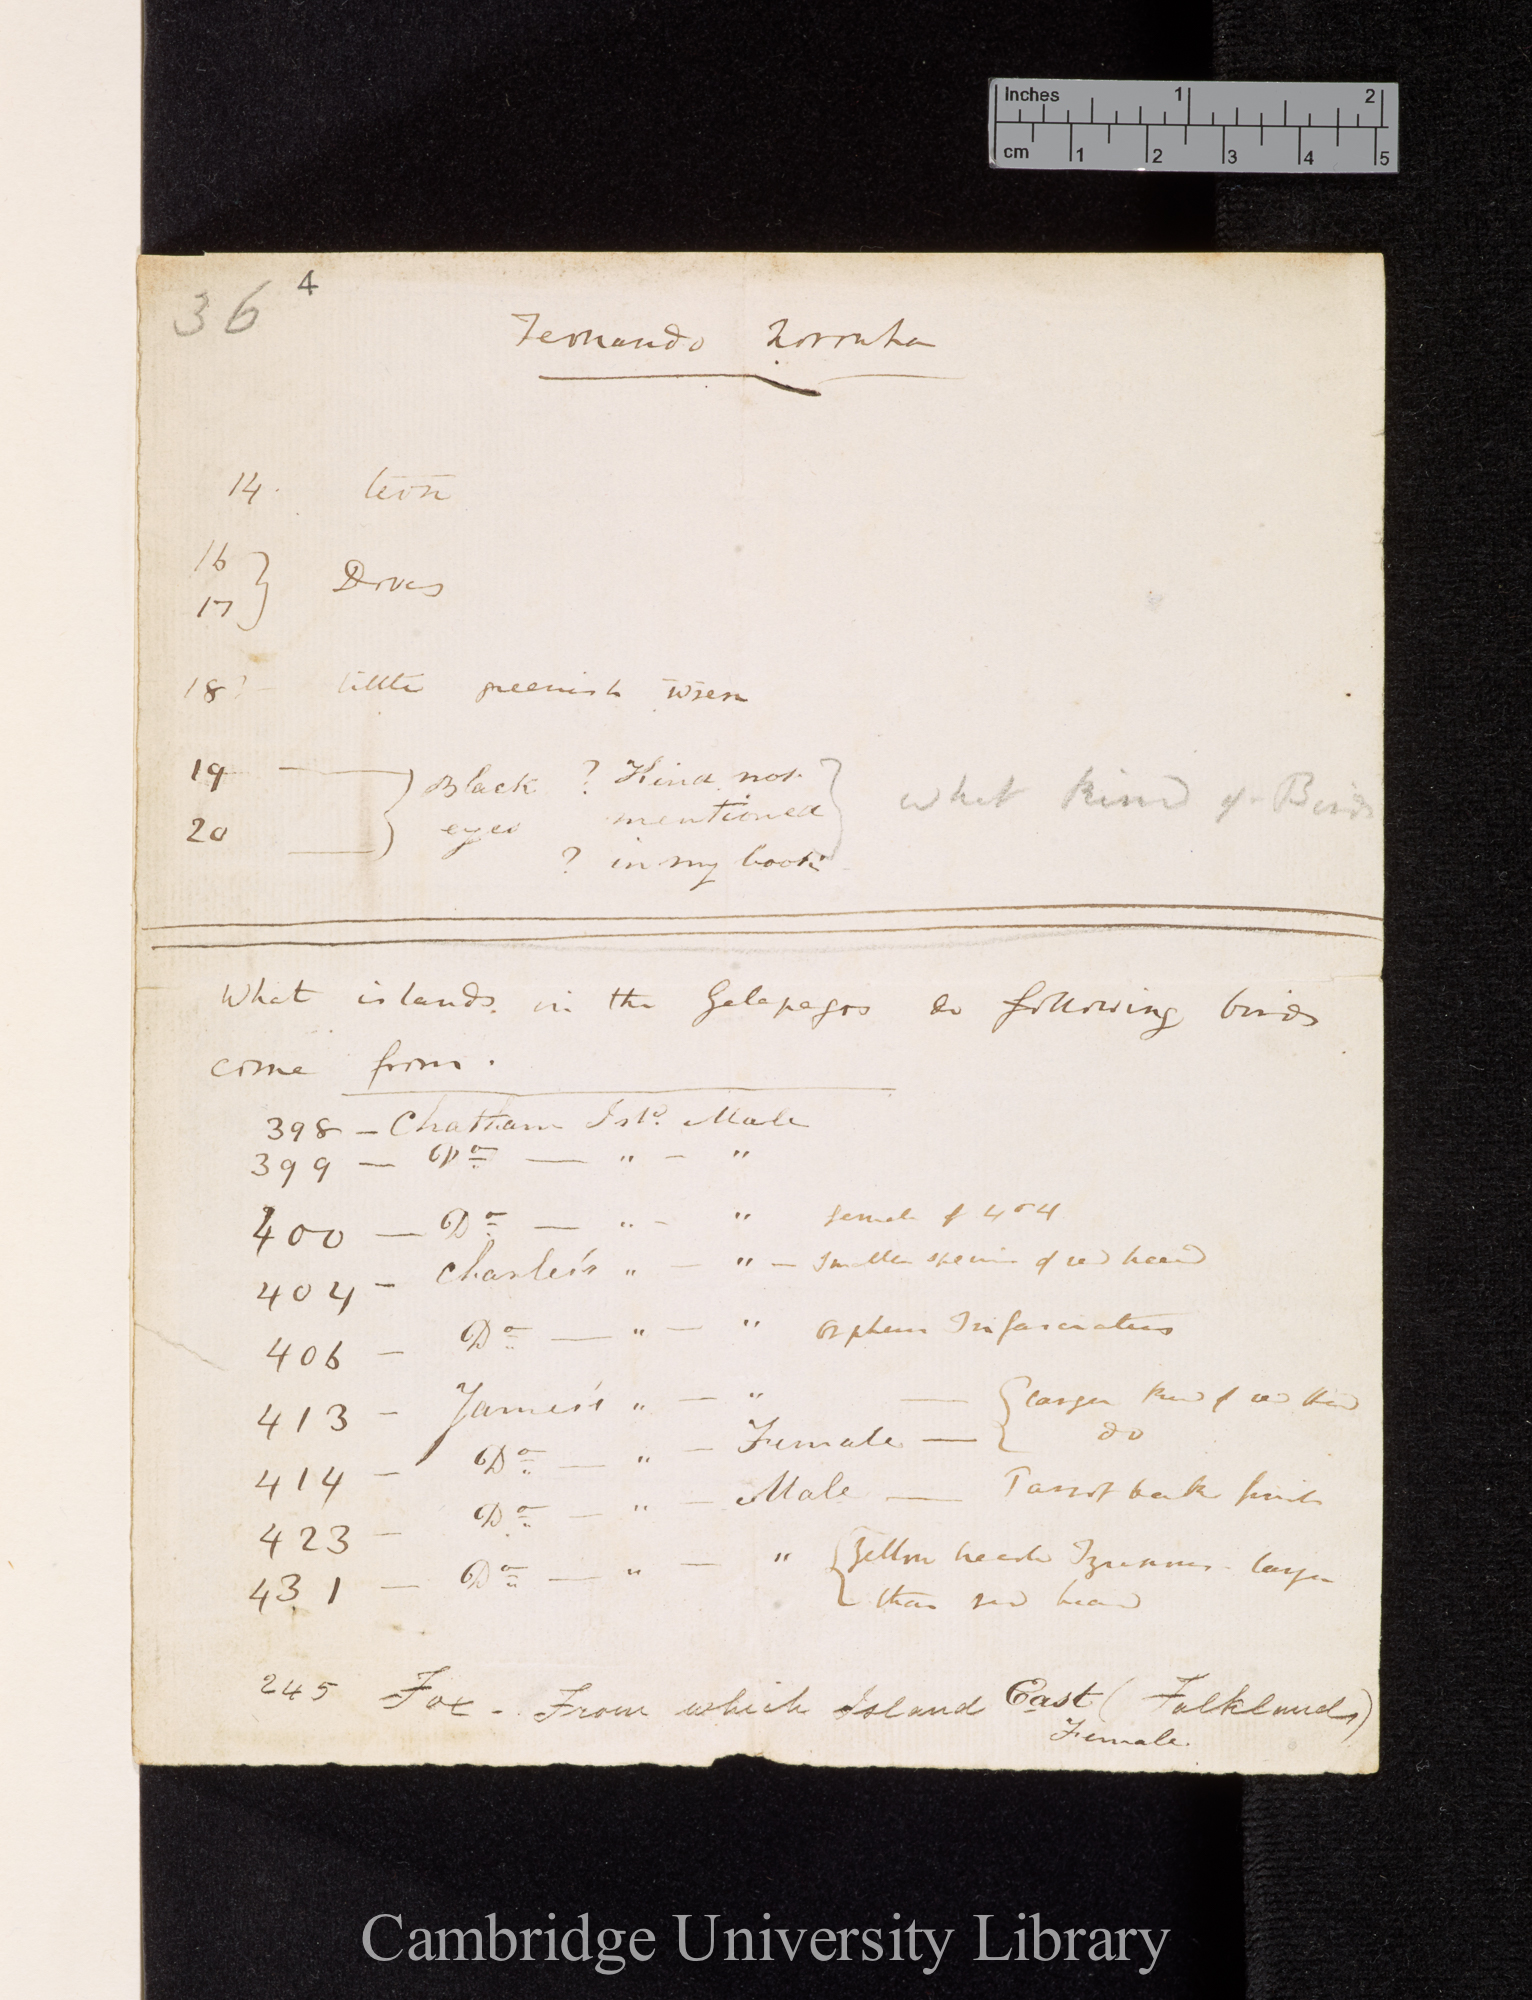 Inches 1 2
cm 1 2 3 4 5
36 4
Fernando Noronha
14. tern
16
17 } Doves
18? - little greenish wren
19 — } Black ? Kind not }
20 — } eyes mentioned } what kind of Birds
? in my book
What islands in the Galapagos do following birds
come from.
398 - Chatham Isld. Male
399 — Do — " - "
400 — Do — " - " female of 404
404 - Charles's " - " - smaller specimen of red head
406 - Do — " - " Orpheus Trifasciatus
413 - James's " - " — { larger kind of red head
414 - Do — " - Female — { do
423 - Do - " - Male — Parrot beak finch
431 - Do — " - " { Yellow breast Tyrannus - larger
{ than red head
245 Fox - From which Island East (Falklands)
Female.
Cambridge University Library